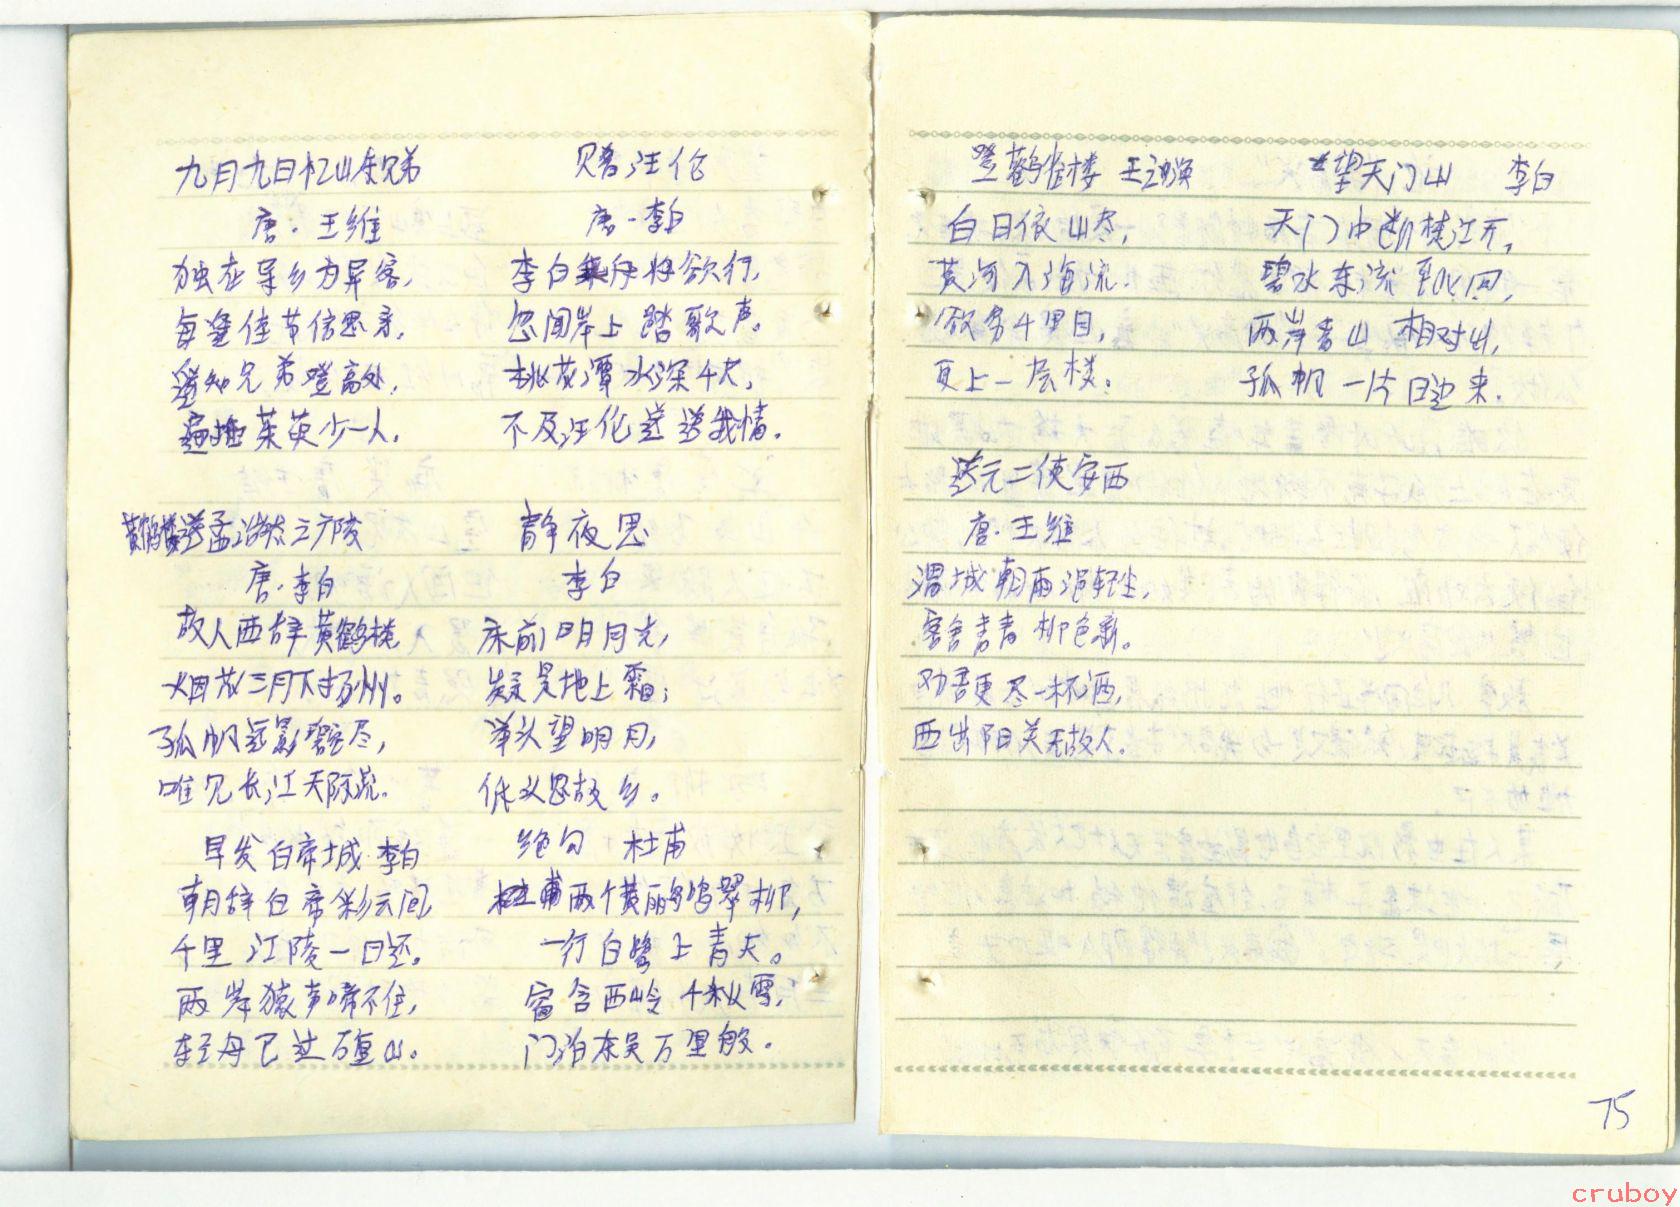 九月九日忆山东兄弟
唐·王维
独在异乡为异客，
每逢佳节倍思亲，
遥知兄弟登高处，
遍插茱萸少一人，
赠汪伦
唐·李白
李白乘舟将欲行，
忽闻岸上踏歌声。
桃花潭水深千尺，
不及汪伦送我情。
黄鹤楼送孟浩然之广陵
唐·李白
故人西辞黄鹤楼
烟花三月下扬州。
孤帆远影碧空尽，
唯见长江天际流．
静夜思
李白
床前明月光，
疑是地上霜；
举头望明月，
低头思故乡。
早发白帝城·李白
朝辞白帝彩云间，
千里江陵一日还。
两岸猿声啼不住，
轻舟已过万重山。
绝句 杜甫
两个黄鹂鸣翠柳，
一行白鹭上青天。
窗含西岭千秋雪，
门泊东吴万里船．
登鹳雀楼 王之涣
白日依山尽，
黄河入海流．
欲穷千里目，
更上一层楼．
望天门山 李白
天门中断楚江开，
碧水东流至此回，
两岸青山相对出，
孤帆一片日边来．
送元二使安西
唐·王维
渭城朝雨浥轻尘，
客舍青青柳色新。
劝君更尽一杯酒，
西出阳关无故人．
75
cruboy